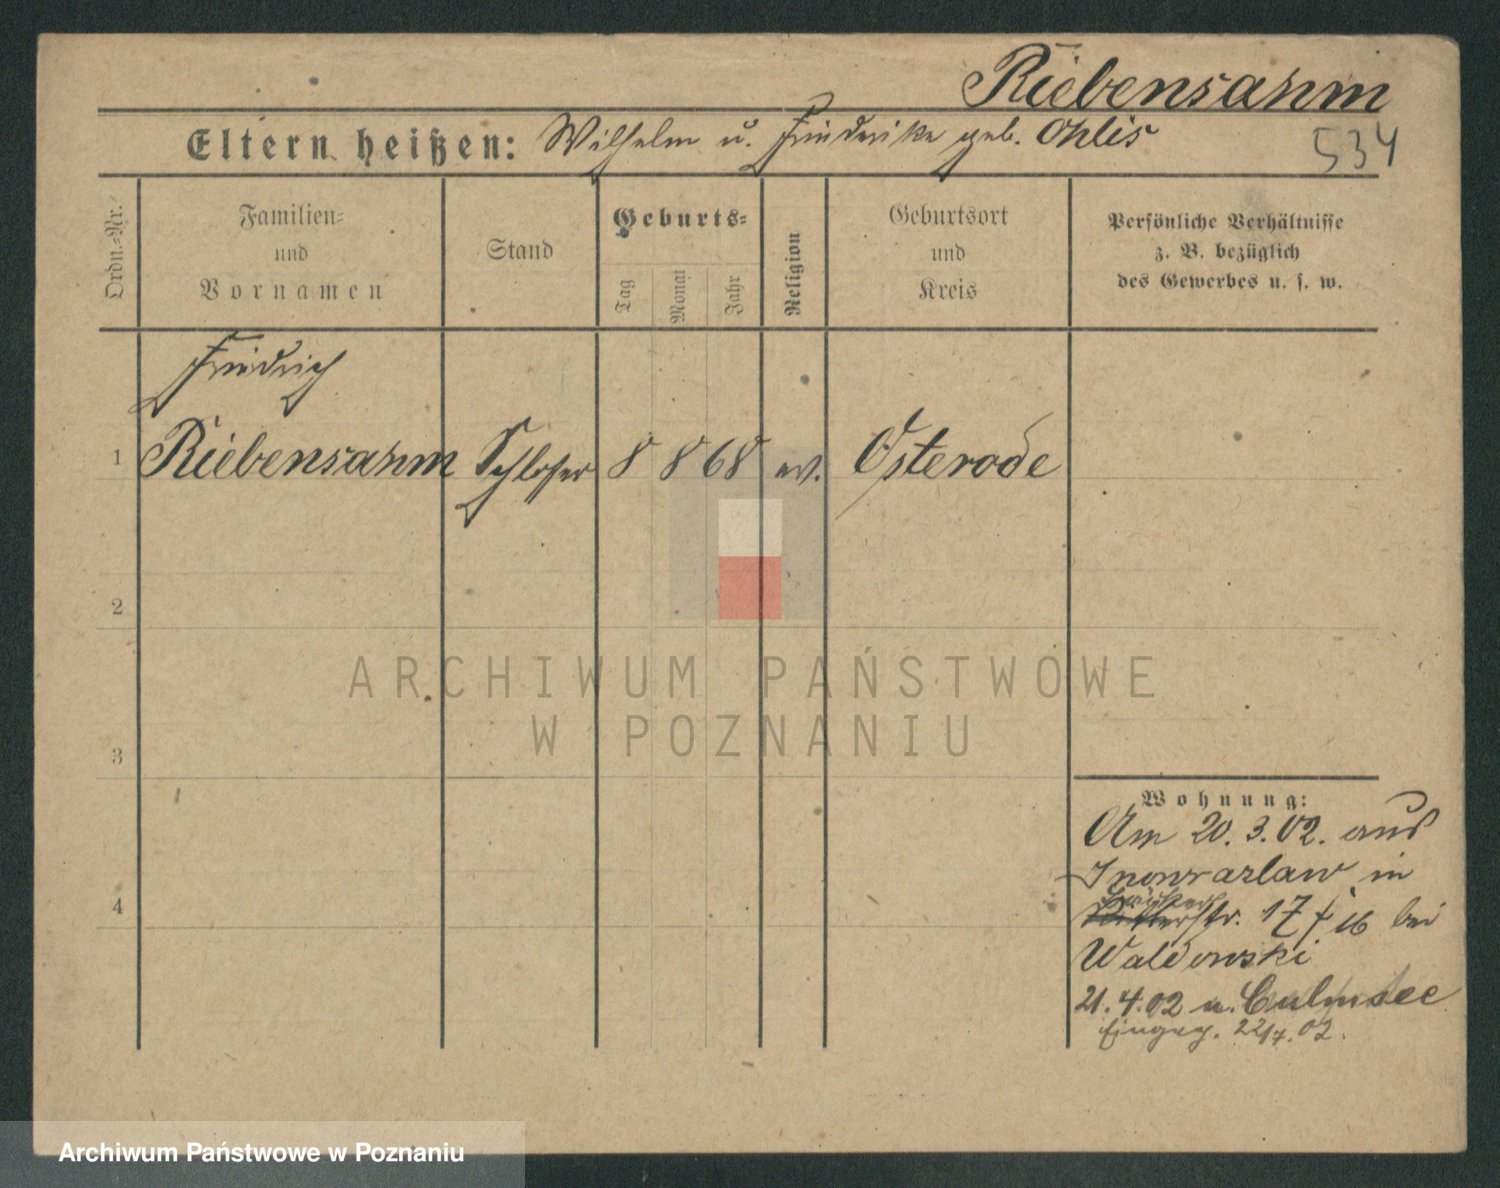 Riebensahm
Eltern heißen: Wilhelm u. Friederike geb. Ohlis
534
Ordn.-Nr.
Familien-
und
Vornamen
Stand
Geburts-
Tag
Monat
Jahr
Religion
Geburtsort
und
Kreis
Persönliche Verhältnisse
z. B. bezüglich
des Gewerbes u. s. w.
Friedrich
1 Riebensahm Schlosser 8 8 68 ev. Osterode
2
3
4
ARCHIWUM PAŃSTWOWE
W POZNANIU
Wohnung:
Am 20. 3. 02. aus
Inowrazlaw in
str. 17 / 16 bei
Waldowski
21. 4. 02 n. Culmsee
Eingeg. 22/7. 02.
Archiwum Państwowe w Poznaniu